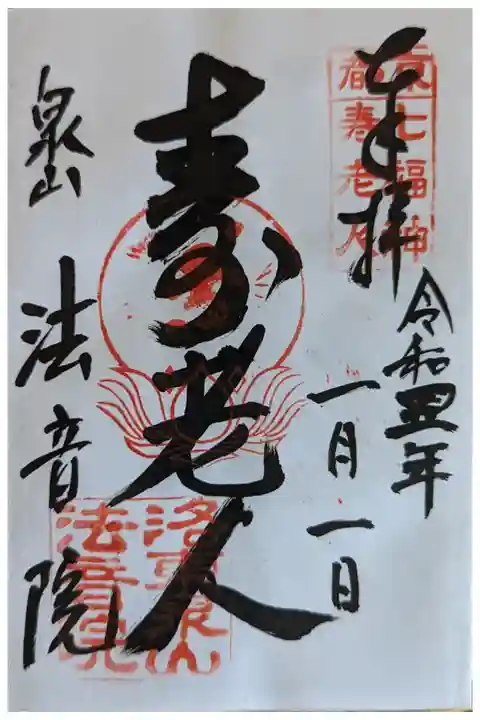 奉拝
京七福神
都寿老人
令和四年
一月一日
寿老人
洛東泉山
法音院
泉山 法音院